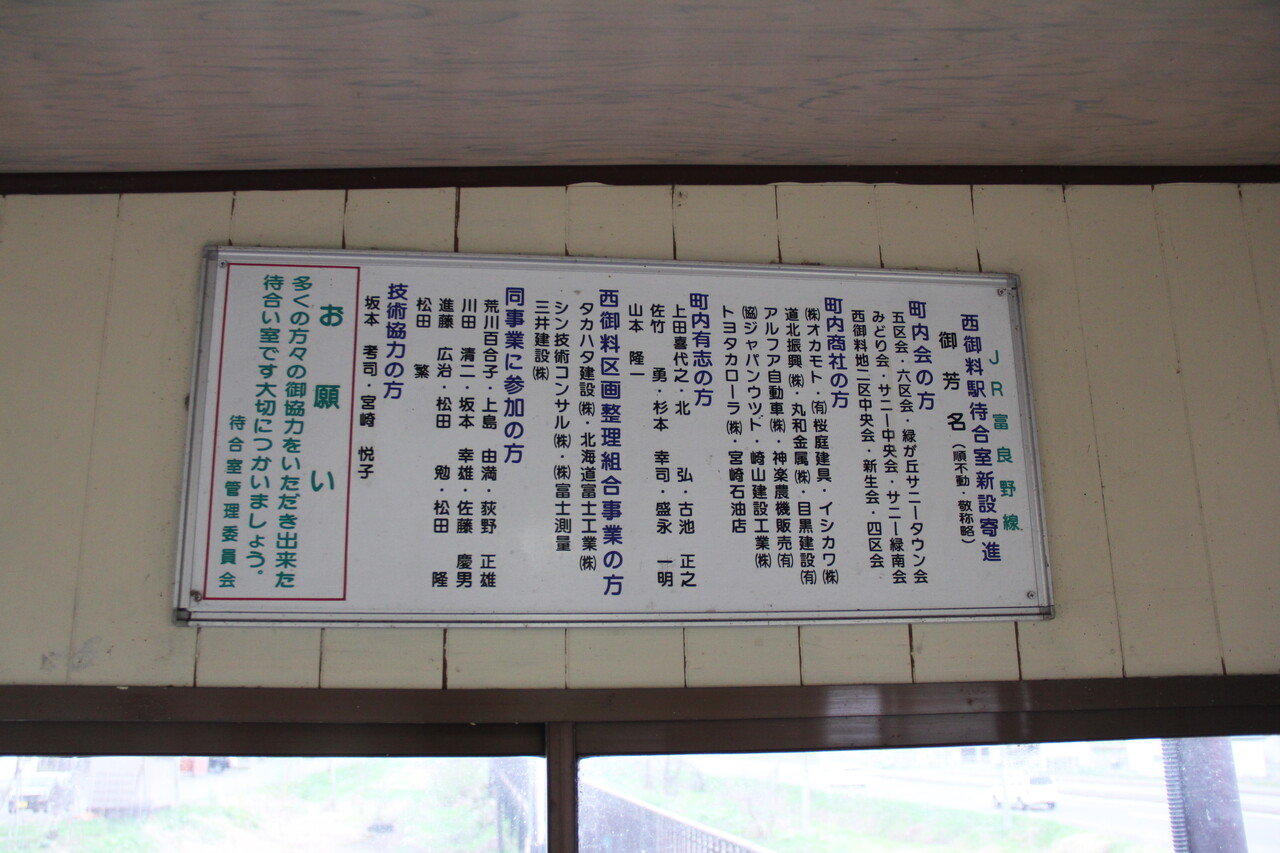 JR富良野線
西御料駅待合室新設寄進
御芳名(順不動・敬称略)
町内会の方
五区会・六区会・緑が丘サニータウン会
みどり会・サニー中央会・サニー緑南会
西御料地二区中央会・新生会・四区会
町内商社の方
㈱オカモト・㈲桜庭建具・イシカワ㈱
道北振興㈱・丸和金属㈱・目黒建設㈲
アルファ自動車㈱・神楽農機販売㈲
㈿ジャパンウッド・崎山建設工業㈱
トヨタカローラ㈱・宮崎石油店
町内有志の方
上田喜代之・北 弘・古池 正之
佐竹 勇・杉本 幸司・盛永 一明
山本 隆一
西御料区画整理組合事業の方
タカハタ建設㈱・北海道富士工業㈱
シン技術コンサル㈱・㈱富士測量
三井建設㈱
同事業に参加の方
荒川百合子・上島 由満・荻野 正雄
川田 清二・坂本 幸雄・佐藤 慶男
進藤 広治・松田 勉・松田 隆
松田 繁
技術協力の方
坂本 考司・宮崎 悦子
お願い
多くの方々の御協力をいただき出来た
待合い室です大切につかいましょう。
待合室管理委員会